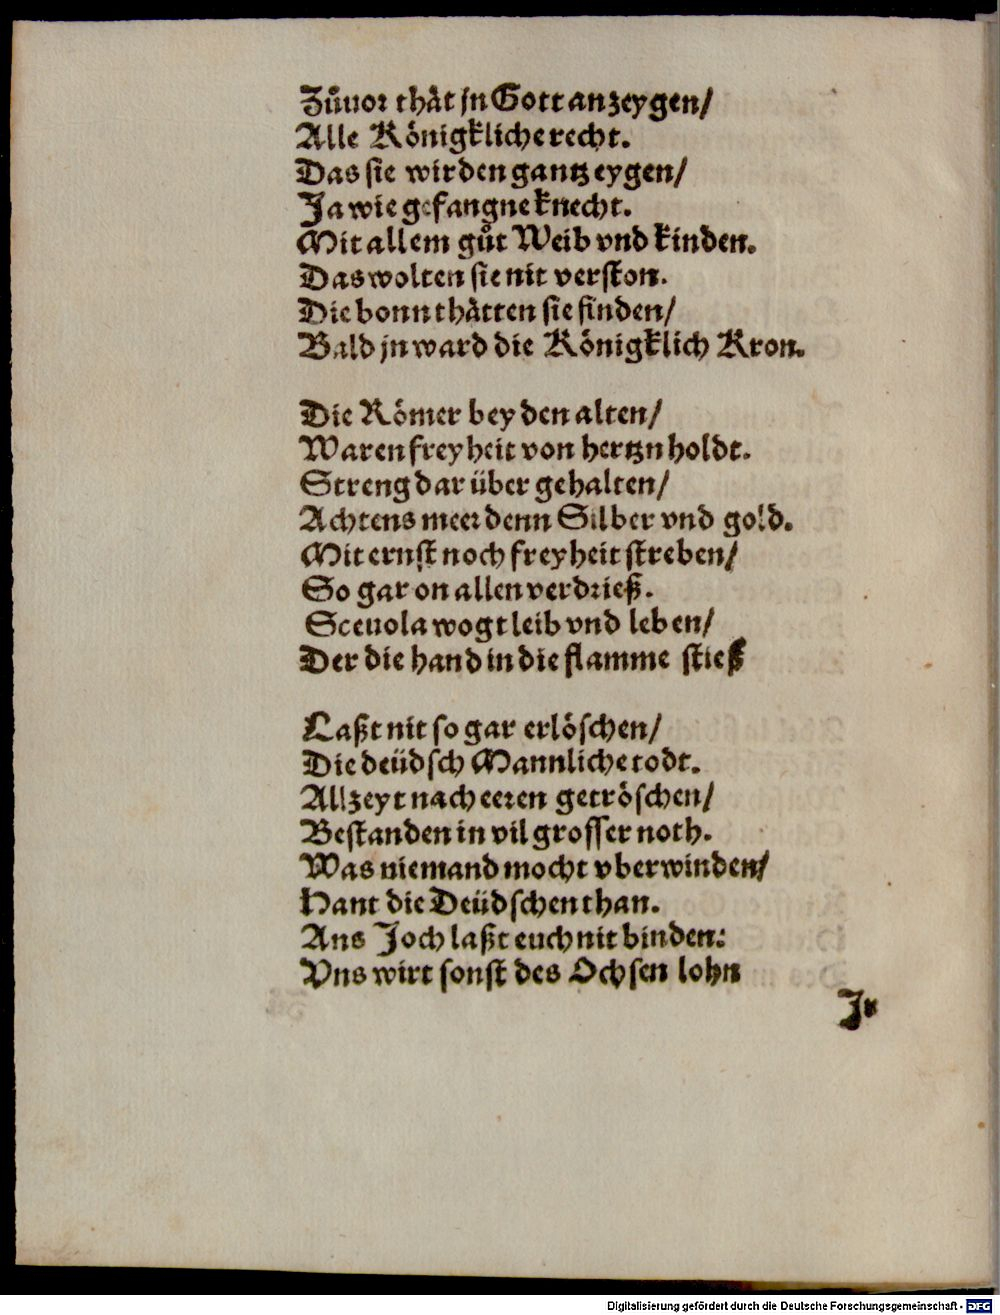 Zůuor thät jn Gott anzeygen/
Alle Königkliche recht.
Das sie wirden gantz eygen/
Ja wie gefangne knecht.
Mit allem gůt Weib vnd kinden.
Das wolten sie nit verston.
Die bonn thätten sie finden/
Bald jn ward die Königklich Kron.

Die Römer bey den alten/
Waren freyheit von hertzn holdt.
Streng dar über gehalten/
Achtens meer denn Silber vnd gold.
Mit ernst noch freyheit streben/
So gar on allen verdrieß.
Sceuola wogt leib vnd leben/
Der die hand in die flamme stieß

Laßt nit so gar erlöschen/
Die deüdsch Mannliche rodt.
Allzeyt nach eeren getröschen/
Bestanden in vil grosser noth.
Was niemand mocht vberwinden/
Hant die Deüdschen than.
Ans Joch laßt euch nit binden:
Vns wirt sonst des Ochsen lohn
Jr
Digitalisierung gefördert durch die Deutsche Forschungsgemeinschaft - DFG